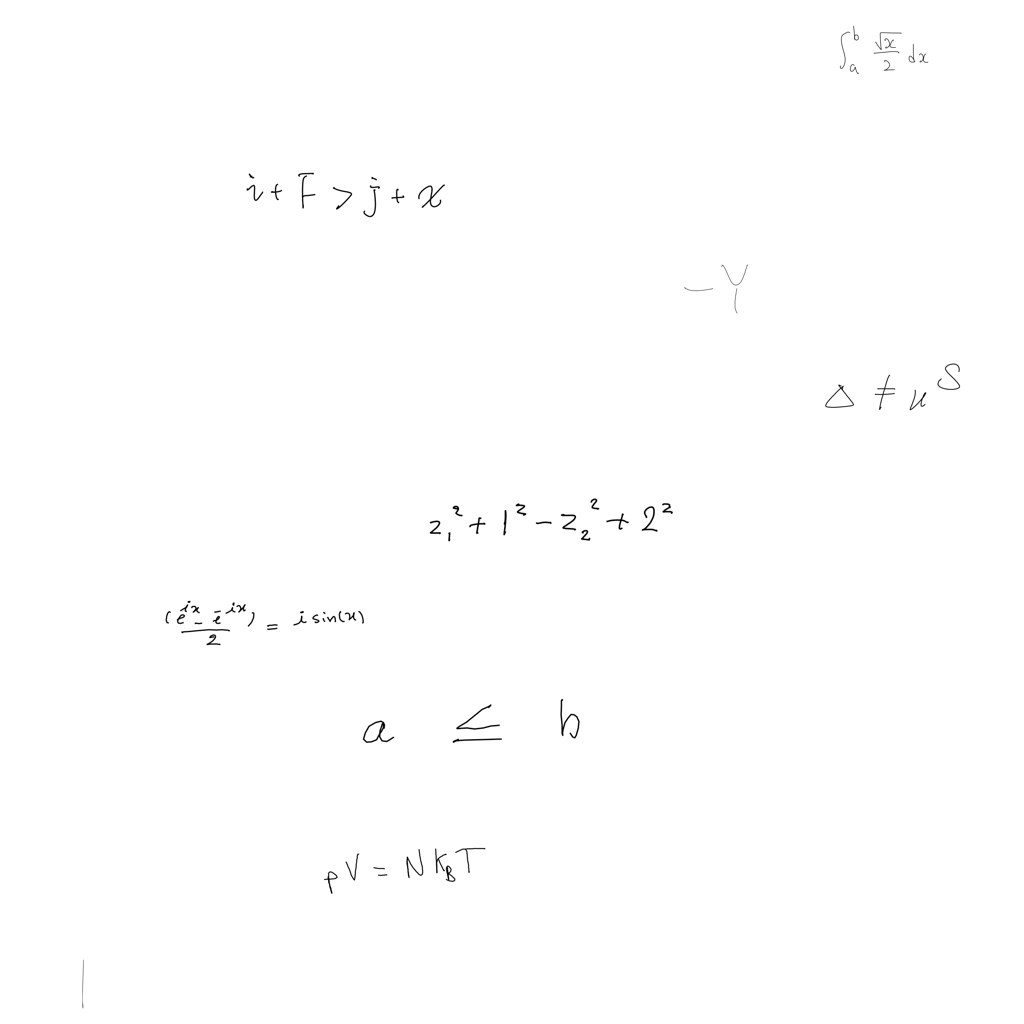 ∫_a^b √x/2 dx
i + F > j + x
-Y
Δ ≠ u^S
z_1^2 + 1^2 - z_2^2 + 2^2
(e^{ix} - e^{-ix})/2 = i sin(x)
a ≤ b
pV = NK_BT
|